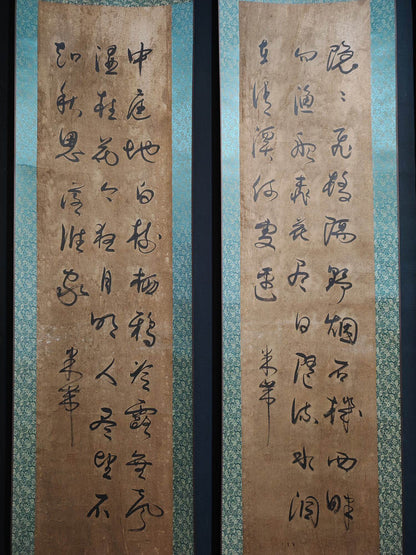 隱〻飛橋隔野烟石機西畔
问漁船桃花尽日随流水洞
在清溪何處邊
米芾
中庭地白树栖鴉冷露無声
濕桂花今夜月明人尽望不
知秋思落誰家
米芾